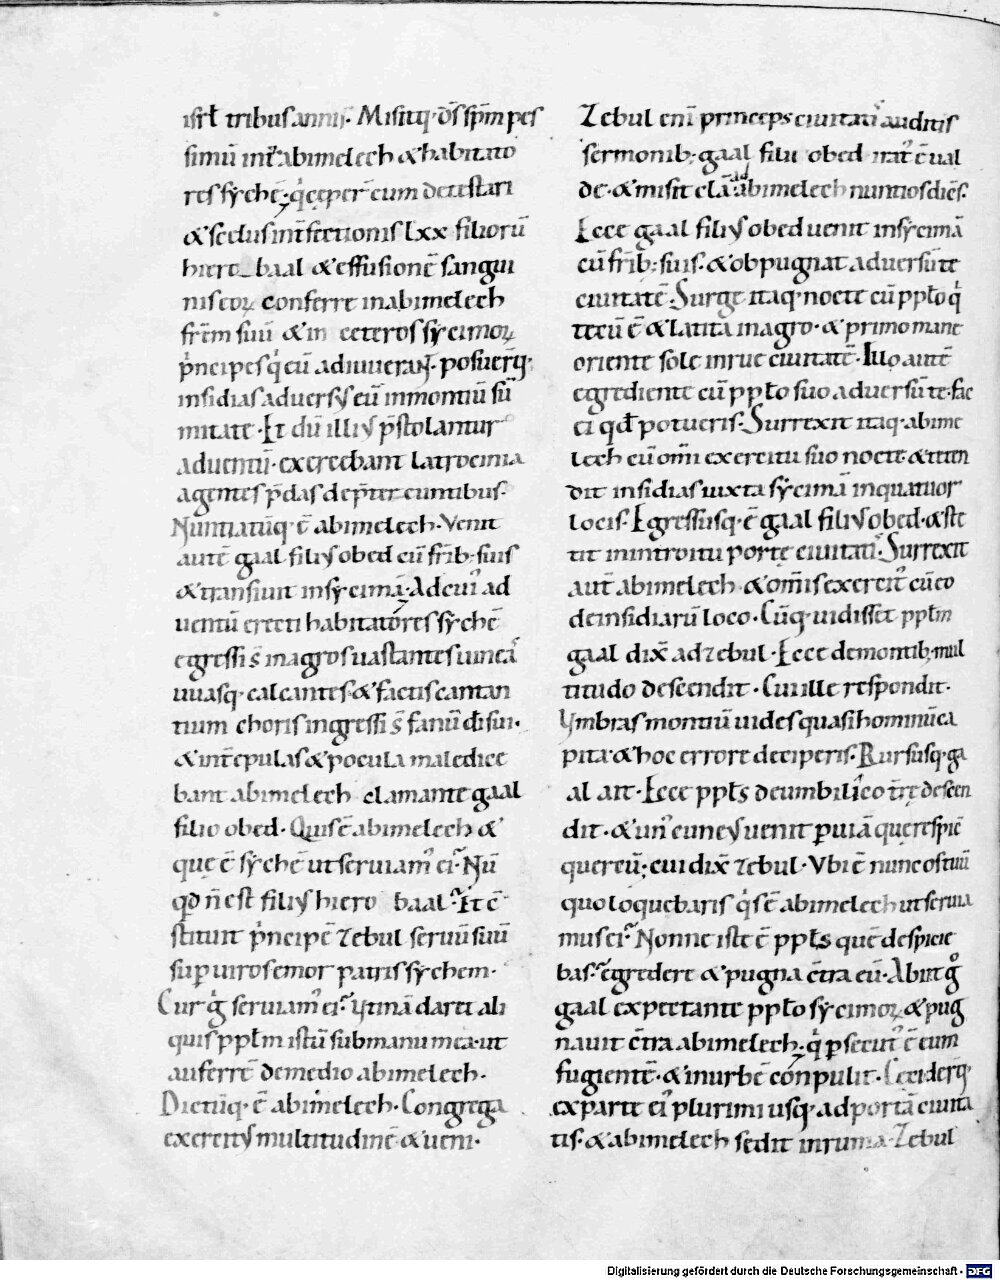 isrł tribus annis. Misitq; d̄s sp̄m pes
simū int̄ abimelech & habitato
res sychē. q̇ cęper̄ eum detestari
& scelus int̄fectionis lxx filiorū
hiero baal & effusionē sangui
nis eoꝝ conferre in abimelech
fr̄em suū & in ceteros sycimoꝝ
ṗncipes q̇ eū adiuuerant. posuer̄q;
insidias adversus eū in montiū sū
mitate. Et dū illius p̄stolantur
adventū. exercebant latrocinia
agentes p̄das de p̄ter euntibus.
Nuntiatūq; ē abimelech. Venit
autē gaal filius obed cū fr̄ib; suis
& transivit in sycimā. Ad cui᾽ ad
uentū erecti habitatores sychē
egressi s̄ in agros uastantes uineas
uuasq; calcantes. & factis cantan
tium choris ingressi s̄ fanū dī sui.
& int̄ epulas & pocula maledice
bant abimelech clamante gaal
filio obed. Quis ē abimelech &
quę ē sychē ut seruiam᾽ ei? Nū
qd n̄ est filius hiero baal? Et cō
stituit ṗncipē zebul seruū suū
sup uiros emor patris sychem.
Cur g̊ seruiam᾽ ei? Utinā daret ali
quis ppłm istū sub manu mea. ut
auferrē de medio abimelech.
Dictūq; ē abimelech. Congrega
exercitus multitudinē & ueni.
Zebul eni princeps ciuitatis auditis
sermonib; gaal filii obed irat᾽ ē ual
de. & misit clā ad abimelech nuntios dicēs.
Ecce gaal filius obed uenit in sycimā
cū fr̄ib; suis. & obpugnat aduersū te
ciuitatē. Surge itaq; nocte cū ppło q̇
tecū ē & latita in agro. & primo mane
oriente sole inrue ciuitatē. Illo autē
egrediente cū ppło suo aduersū te. fac
ei qd̄ potueris. Surrexit itaq; abime
lech cū om̄i exercitu suo nocte & teten
dit insidias iuxta sycimā in quattuor
locis. Egressusq; ē gaal filius obed. & ste
tit in introitu portę ciuitatis. Surrexit
aut̄ abimelech & om̄is exercit᾽ cū eo
de insidiarū loco. Cūq; uidisset ppłm
gaal dix̄ ad zebul. Ecce de montib; mul
titudo descendit. Cui ille respondit.
Umbras montiū uides quasi hominū ca
pita. & hoc errore deciperis. Rursusq; ga
al ait. Ecce ppłs de umbilico tr̄ę descen
dit. & un᾽ cuneus uenit p uiā quę respic̄
quercū; cui dix̄ zebul. Ubi ē nunc os tuū
quo loquebaris q̇s ē abimelech ut seruia
mus ei? Nonne iste ē ppłs quē despicie
bas? Egredere & pugna c̄tra eū. Abiit g̊
gaal expectante ppło sycimoꝝ & pug
nauit c̄tra abimelech. q̇ psecut᾽ ē eum
fugientē. & in urbē conpulit. Cecider̄q;
ex parte ei᾽ plurimi usq; ad portā ciuita
tis. & abimelech sedit in ruma. Zebul
Digitalisierung gefördert durch die Deutsche Forschungsgemeinschaft - DFG